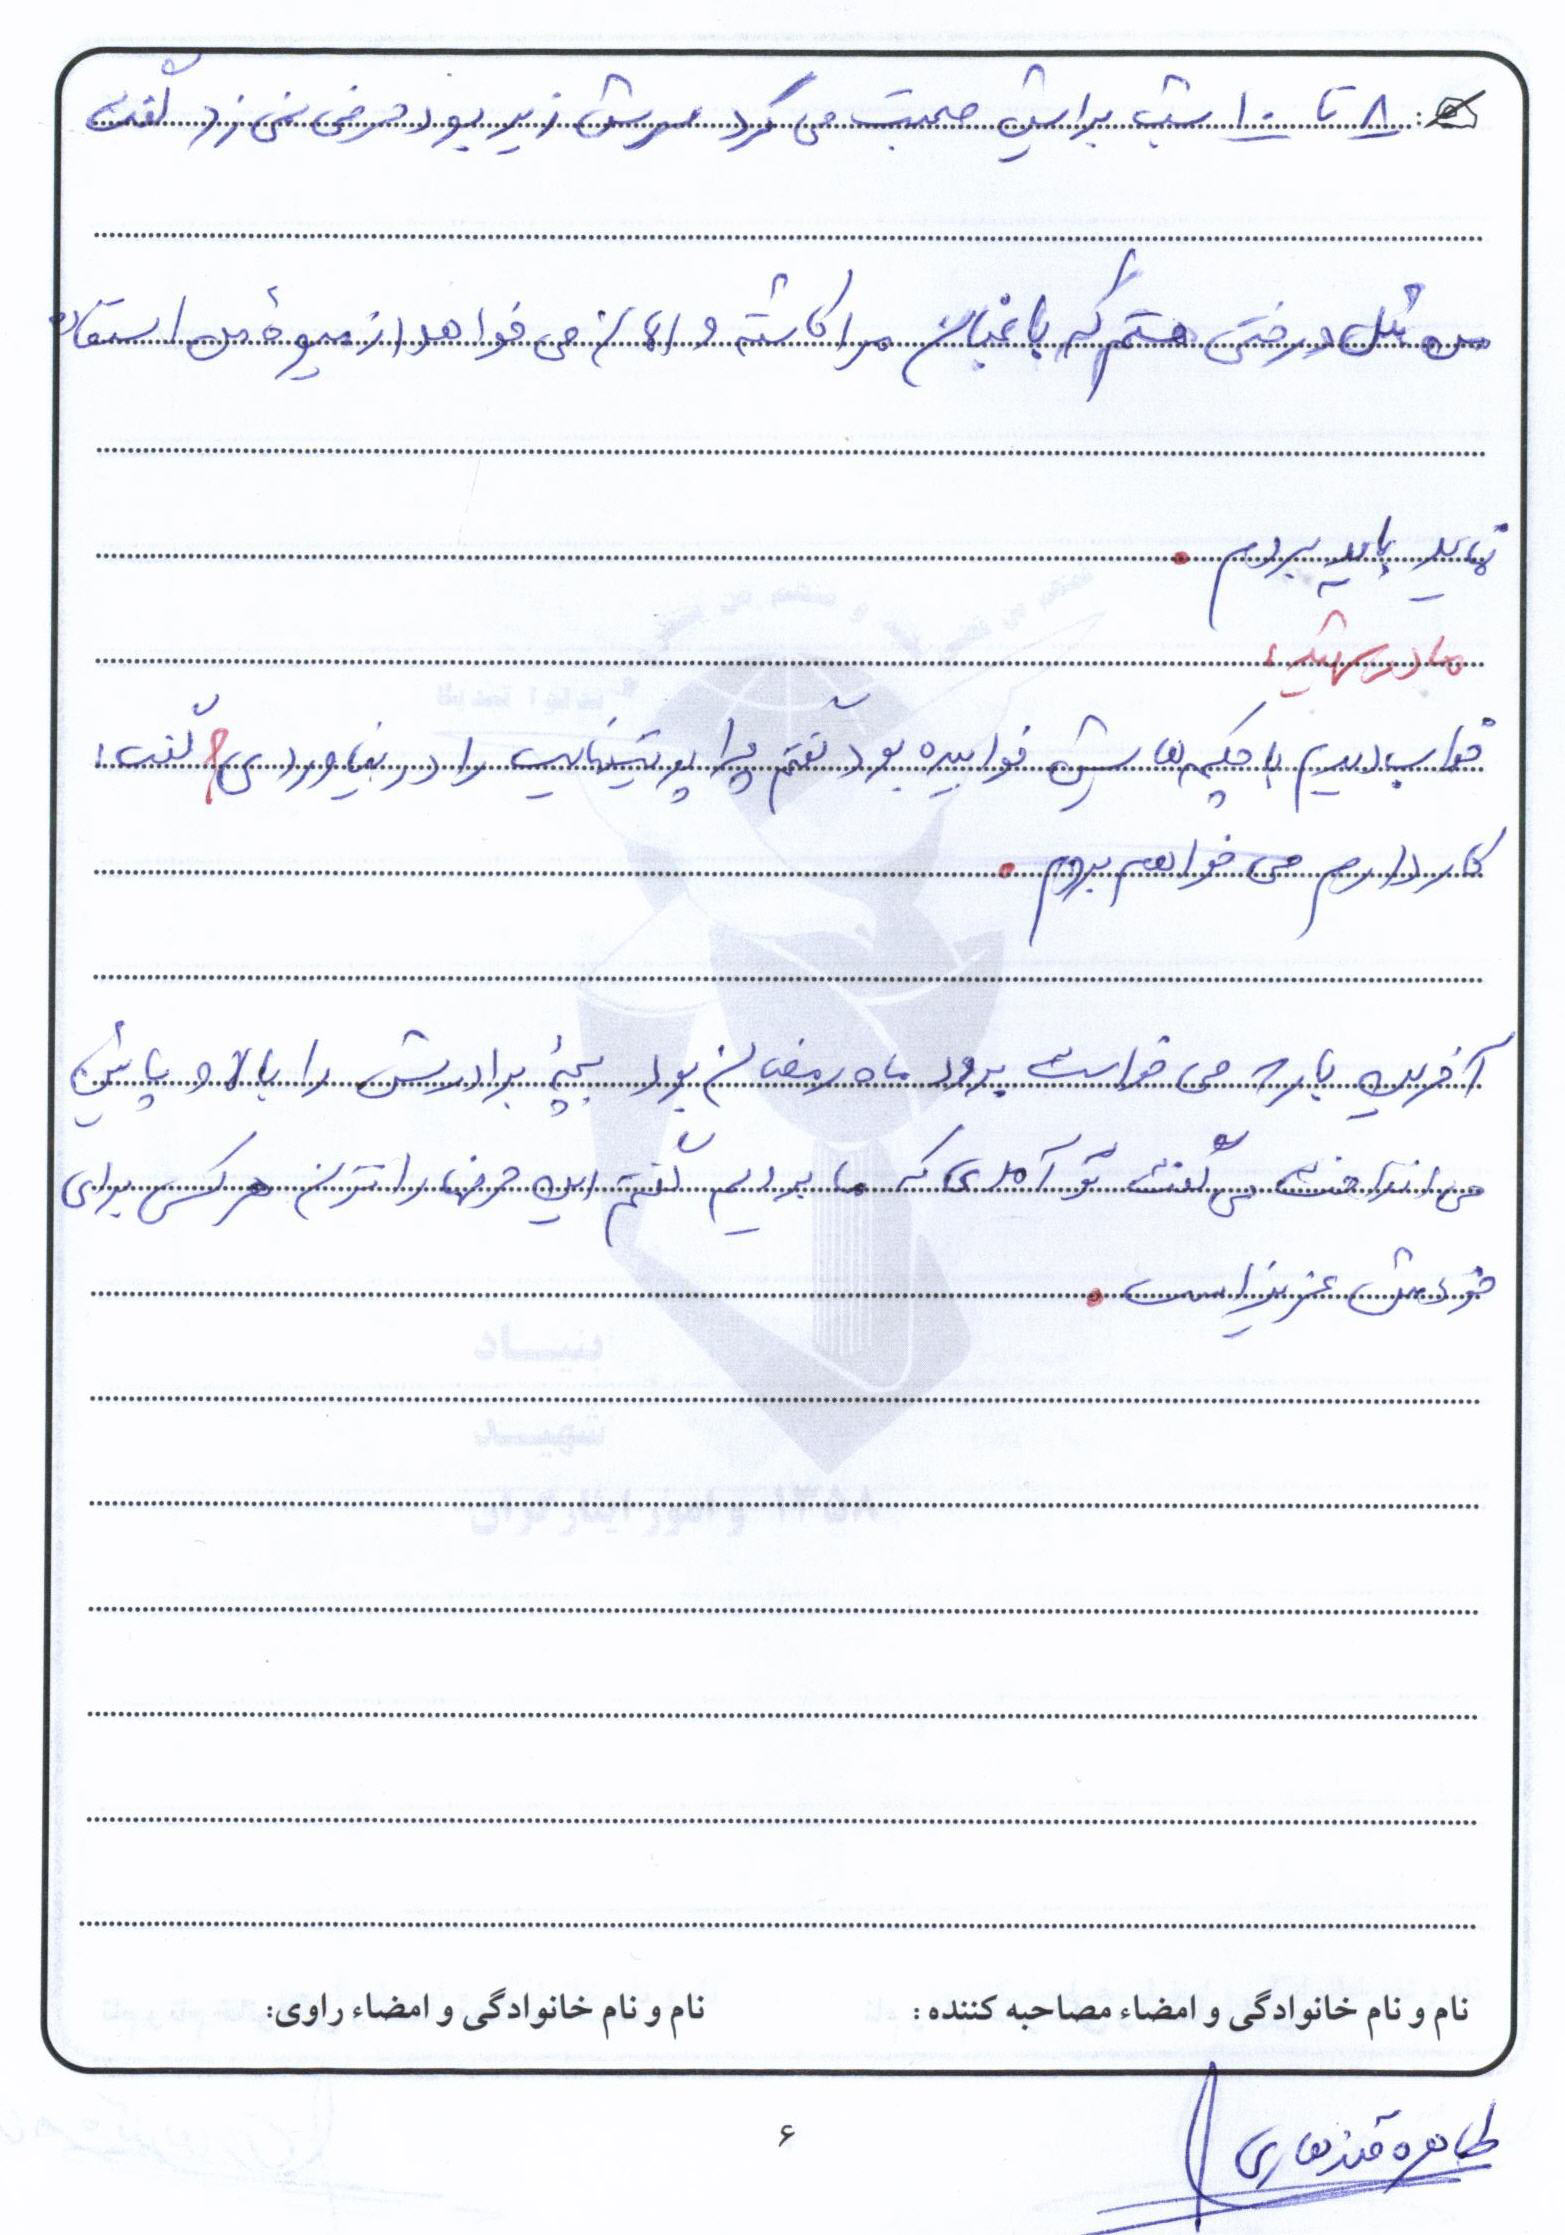 ۸ تا ۱۰ شب برایش صحبت می کرد سرش زیر بود حرفی نمی زد گفت
من مثل درختی هستم که باغبان مرا کاشته و الان می خواهد از میوهٔ من استفاده
نماید باید بروم.
مادر شهید:
خواب دیدم با چکمه هایش خوابیده بود گفتم چرا پوتینهایت را در نیاوردی؟ گفت:
کار دارم می خواهم بروم.
آخرین بار که می خواست برود ماه رمضان بود بچهٔ برادرش را بالا و پائین
می انداخت می گفت تو آمدی که ما برویم گفتم این حرفها را نزن هر کس برای
خودش عزیز است.
بنیاد
شهید
۱۳۵۸ و امور ایثارگران
نام و نام خانوادگی و امضاء مصاحبه کننده: نام و نام خانوادگی و امضاء راوی:
طاهره قندهاری
۶